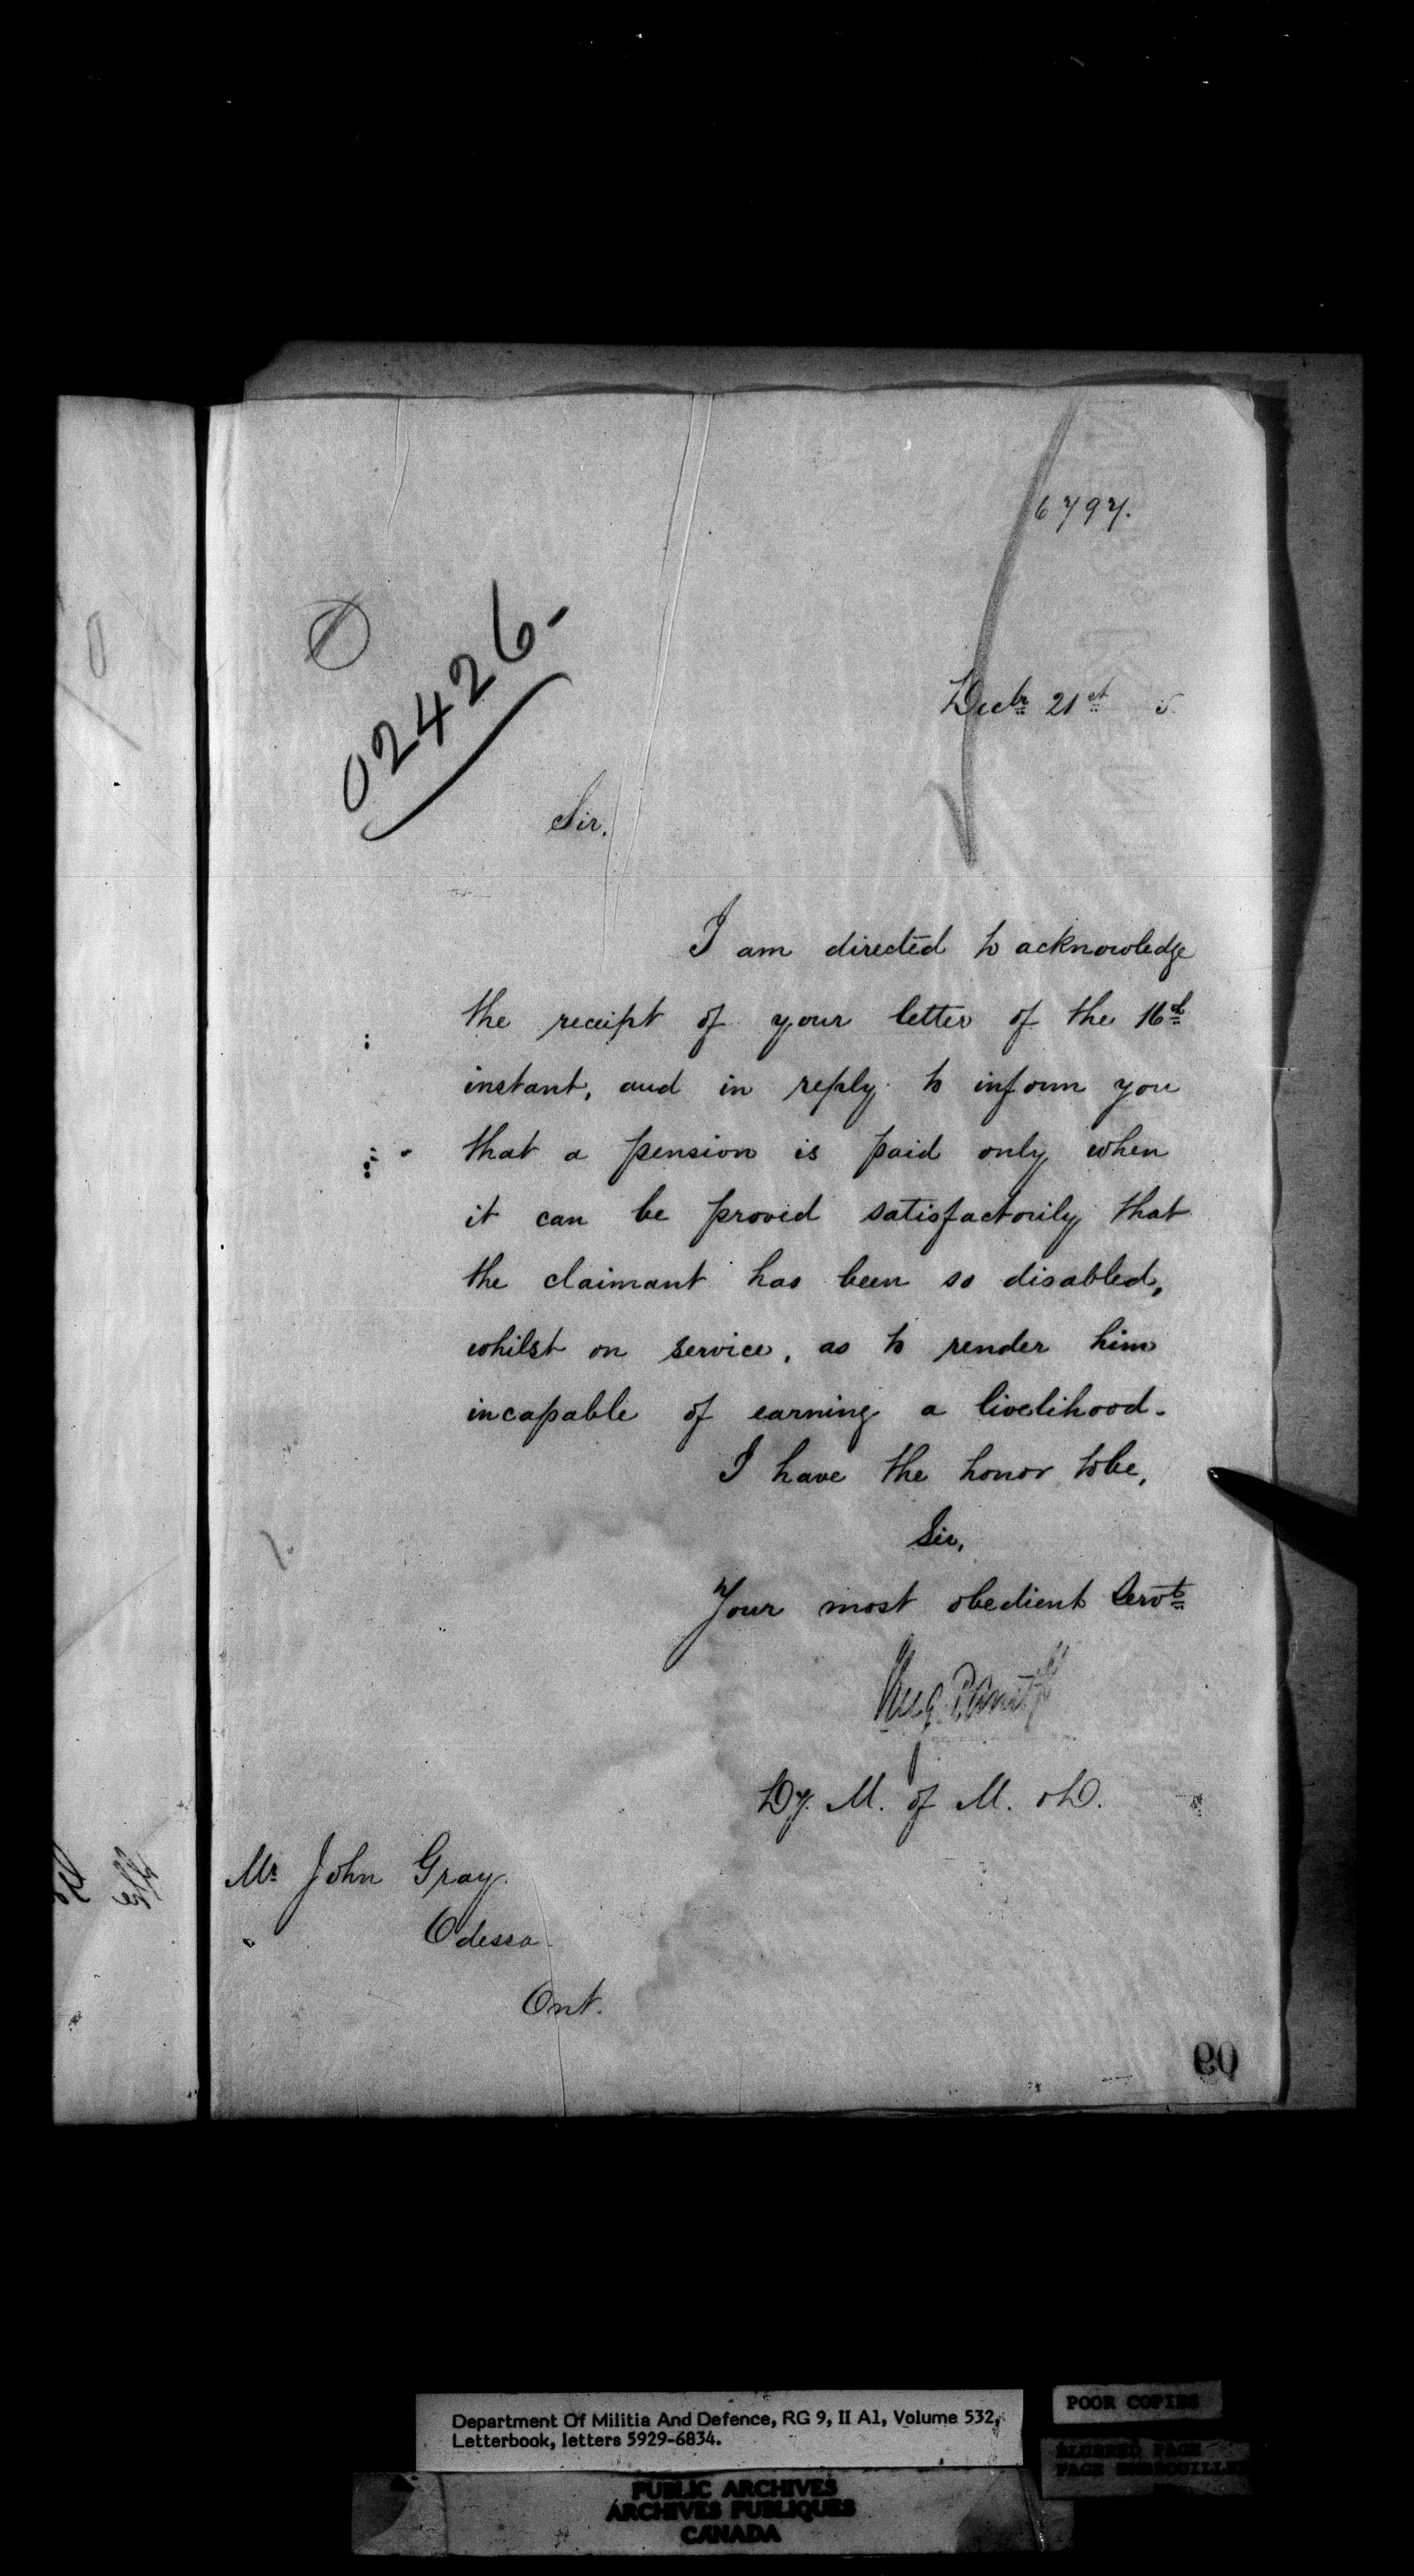 6797.
02426-
Decbr 21st 5.
Sir,
I am directed to acknowledge
the receipt of your letter of the 16th
instant, and in reply to inform you
that a pension is paid only when
it can be proved satisfactorily that
the claimant has been so disabled,
whilst on service, as to render him
incapable of earning a livelihood.
I have the honor to be,
Sir,
Your most obedient Servt
Dy. M. of M. & D.
Mr John Gray
Odessa
Ont.
Department Of Militia And Defence, RG 9, II A1, Volume 532,
Letterbook, letters 5929-6834.
POOR COPIES
BLURRED PAGE
PAGE EMBROUILLEE
PUBLIC ARCHIVES
ARCHIVES PUBLIQUES
CANADA